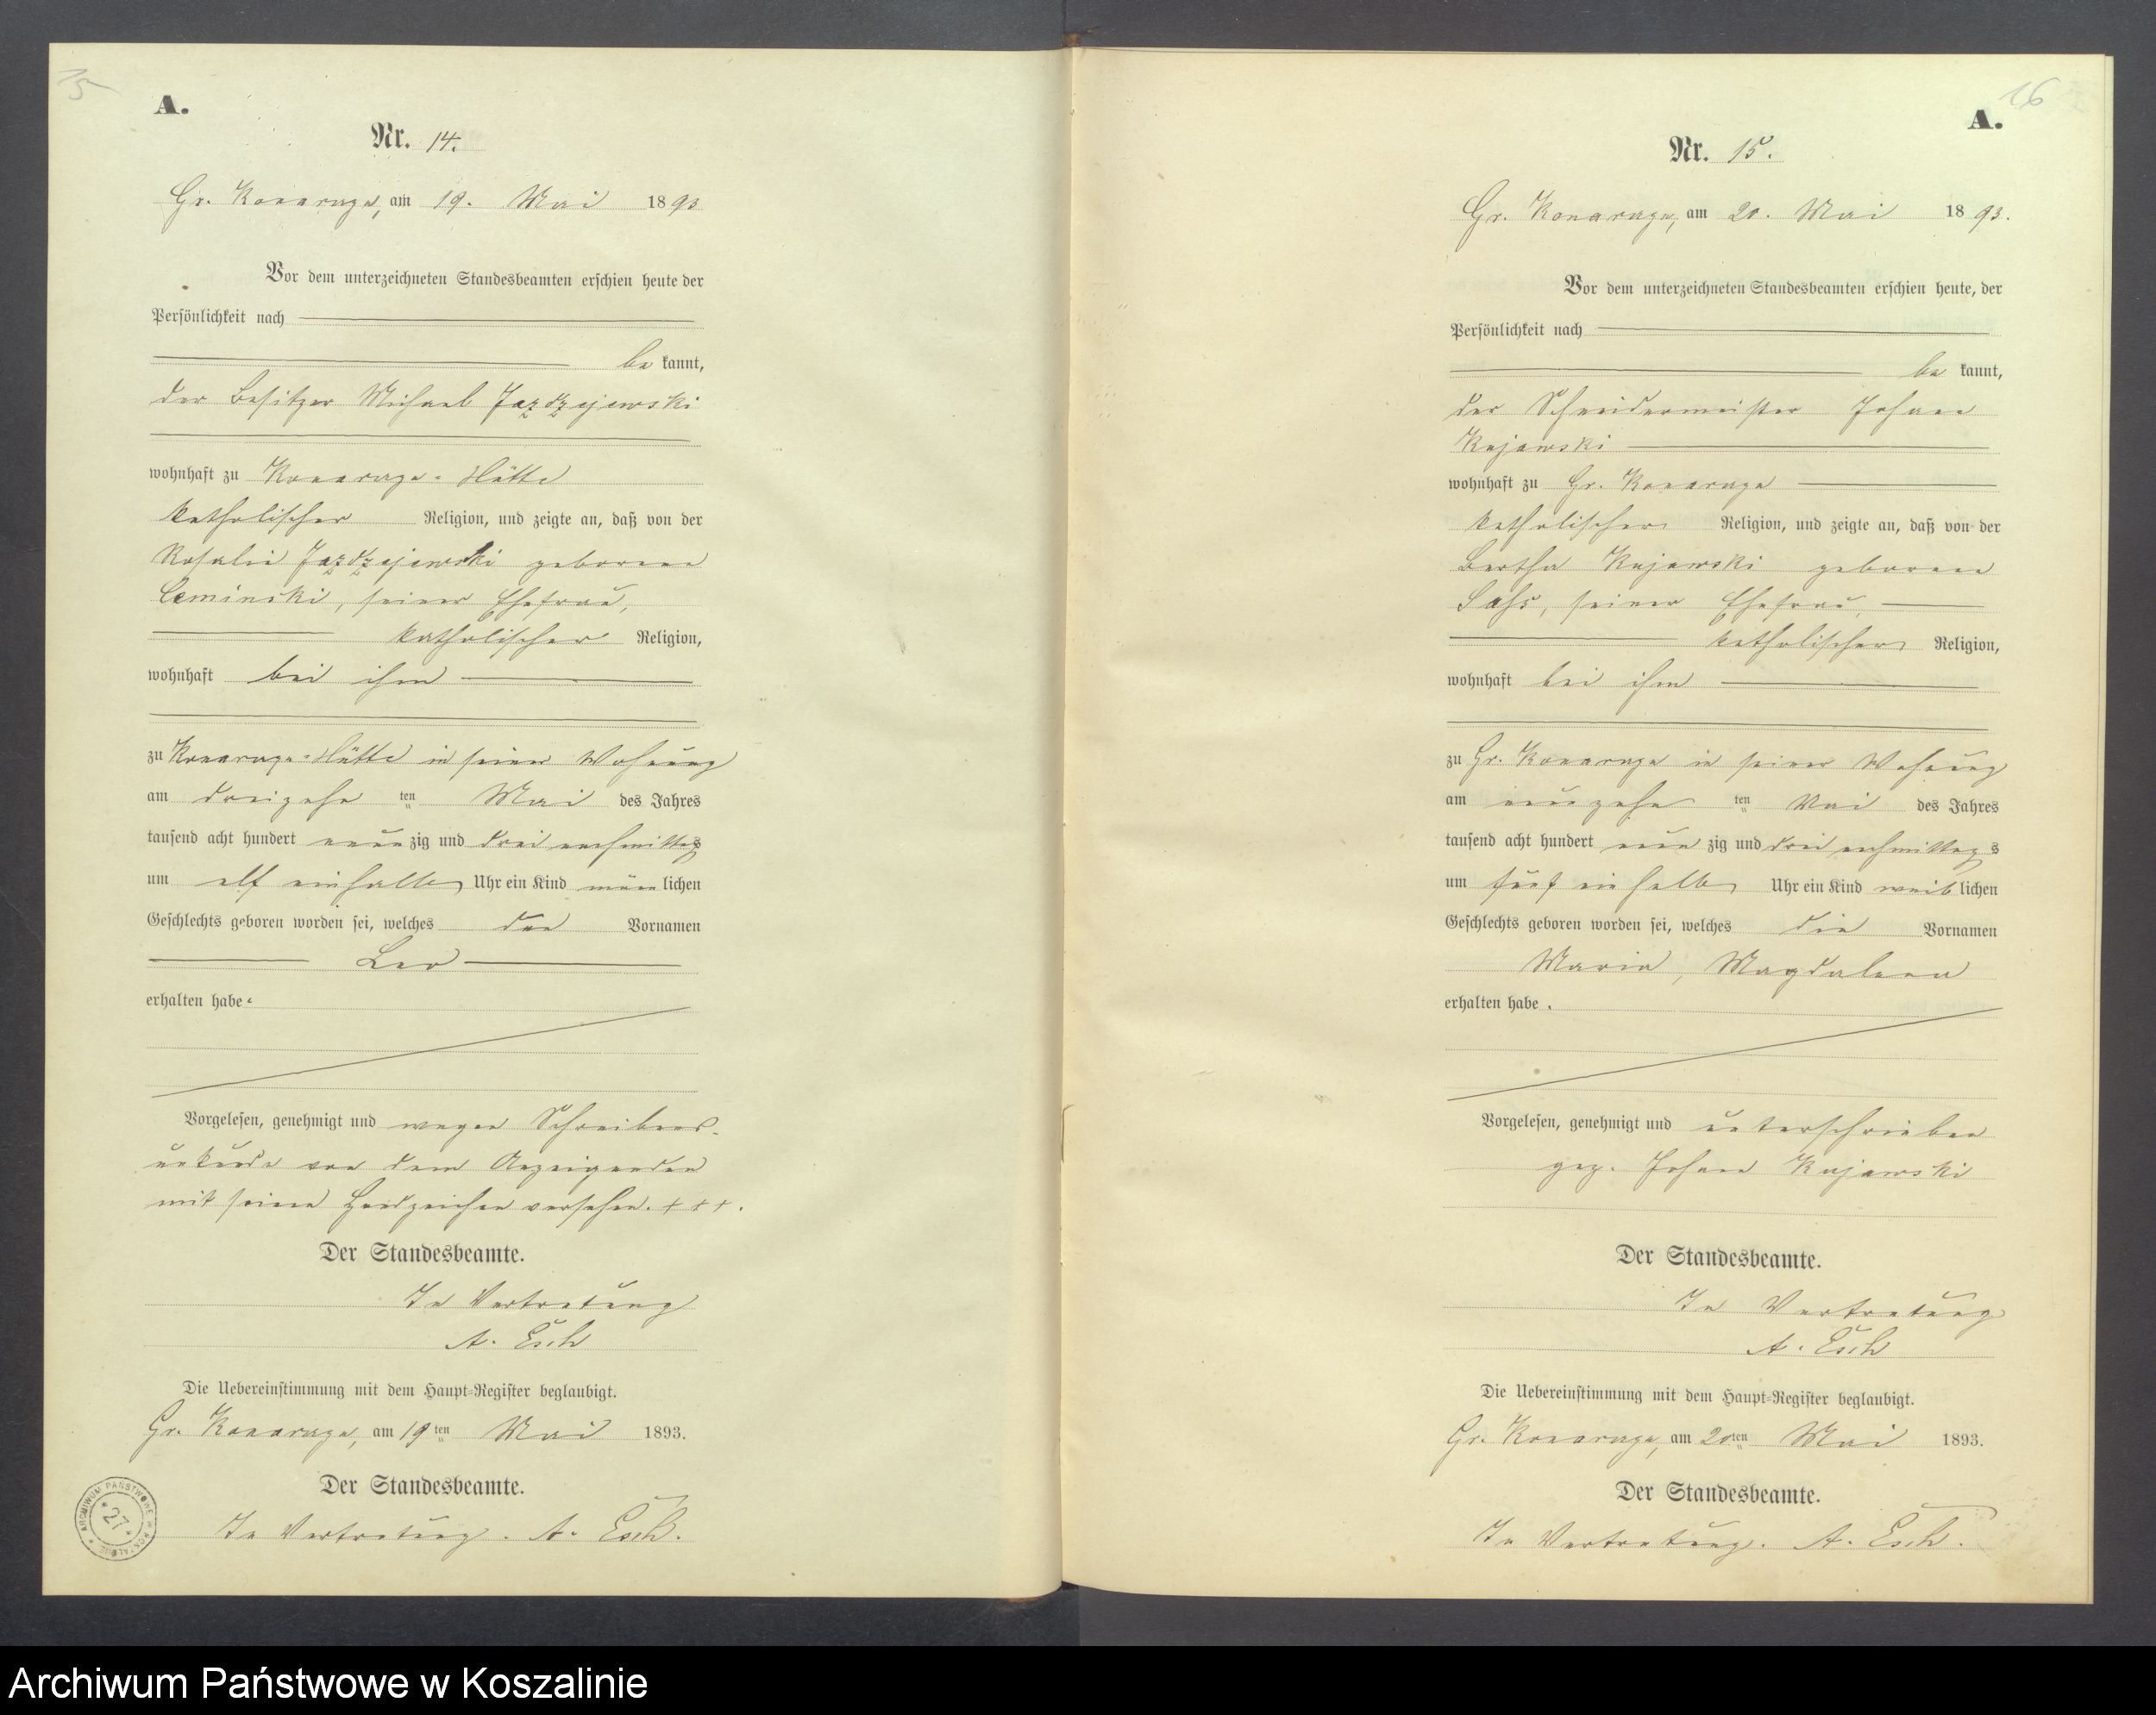 15
A.
Nr. 14.
Gr. Konarczyn, am 19. Mai 1893
Vor dem unterzeichneten Standesbeamten erschien heute der
Persönlichkeit nach
be kannt,
der Besitzer Michael Jazdzejewski
wohnhaft zu Konarczyn-Hütte
katholischer Religion, und zeigte an, daß von der
Rosalie Jazdzejewski geborene
Ceminski, seiner Ehefrau,
katholischer Religion,
wohnhaft bei ihm
zu Konarczyn-Hütte in seiner Wohnung
am dreizehn ten Mai des Jahres
tausend acht hundert neunzig und drei nachmittags
um elf einhalb Uhr ein Kind männlichen
Geschlechts geboren worden sei, welches den Vornamen
Leo
erhalten habe.
Vorgelesen, genehmigt und wegen Schreibens-
unkunde von dem Anzeigenden
mit seinem Handzeichen versehen. + + +.
Der Standesbeamte.
In Vertretung
A. Esch
Die Uebereinstimmung mit dem Haupt-Register beglaubigt.
Gr. Konarczyn, am 19ten Mai 1893.
Der Standesbeamte.
In Vertretung. A. Esch.
ARCHIWUM PAŃSTWOWE W KOSZALINIE
27
16
A.
Nr. 15.
Gr. Konarczyn, am 20. Mai 1893.
Vor dem unterzeichneten Standesbeamten erschien heute, der
Persönlichkeit nach
be kannt,
der Schneidermeister Johann
Kujawski
wohnhaft zu Gr. Konarczyn
katholischer Religion, und zeigte an, daß von der
Bertha Kujawski geborene
seiner Ehefrau,
katholischer Religion,
wohnhaft bei ihm
zu Gr. Konarczyn in seiner Wohnung
am neunzehn ten Mai des Jahres
tausend acht hundert neun zig und drei nachmittags
um fünf ein halb Uhr ein Kind weiblichen
Geschlechts geboren worden sei, welches die Vornamen
Maria, Magdalena
erhalten habe.
Vorgelesen, genehmigt und unterschrieben
gez. Johann Kujawski
Der Standesbeamte.
In Vertretung
A. Esch
Die Uebereinstimmung mit dem Haupt-Register beglaubigt.
Gr. Konarczyn, am 20ten Mai 1893.
Der Standesbeamte.
In Vertretung. A. Esch.
Archiwum Państwowe w Koszalinie